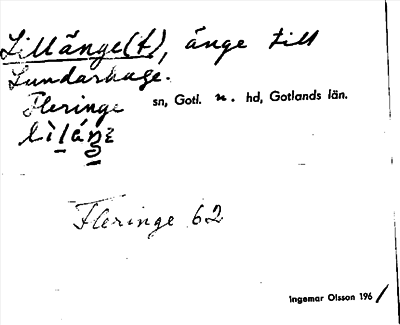 Lilläng e(t), änge till
Lundarhage.
Fleringe sn, Gotl. n. hd, Gotlands län.
Fleringe 62
Ingemar Olsson 1961